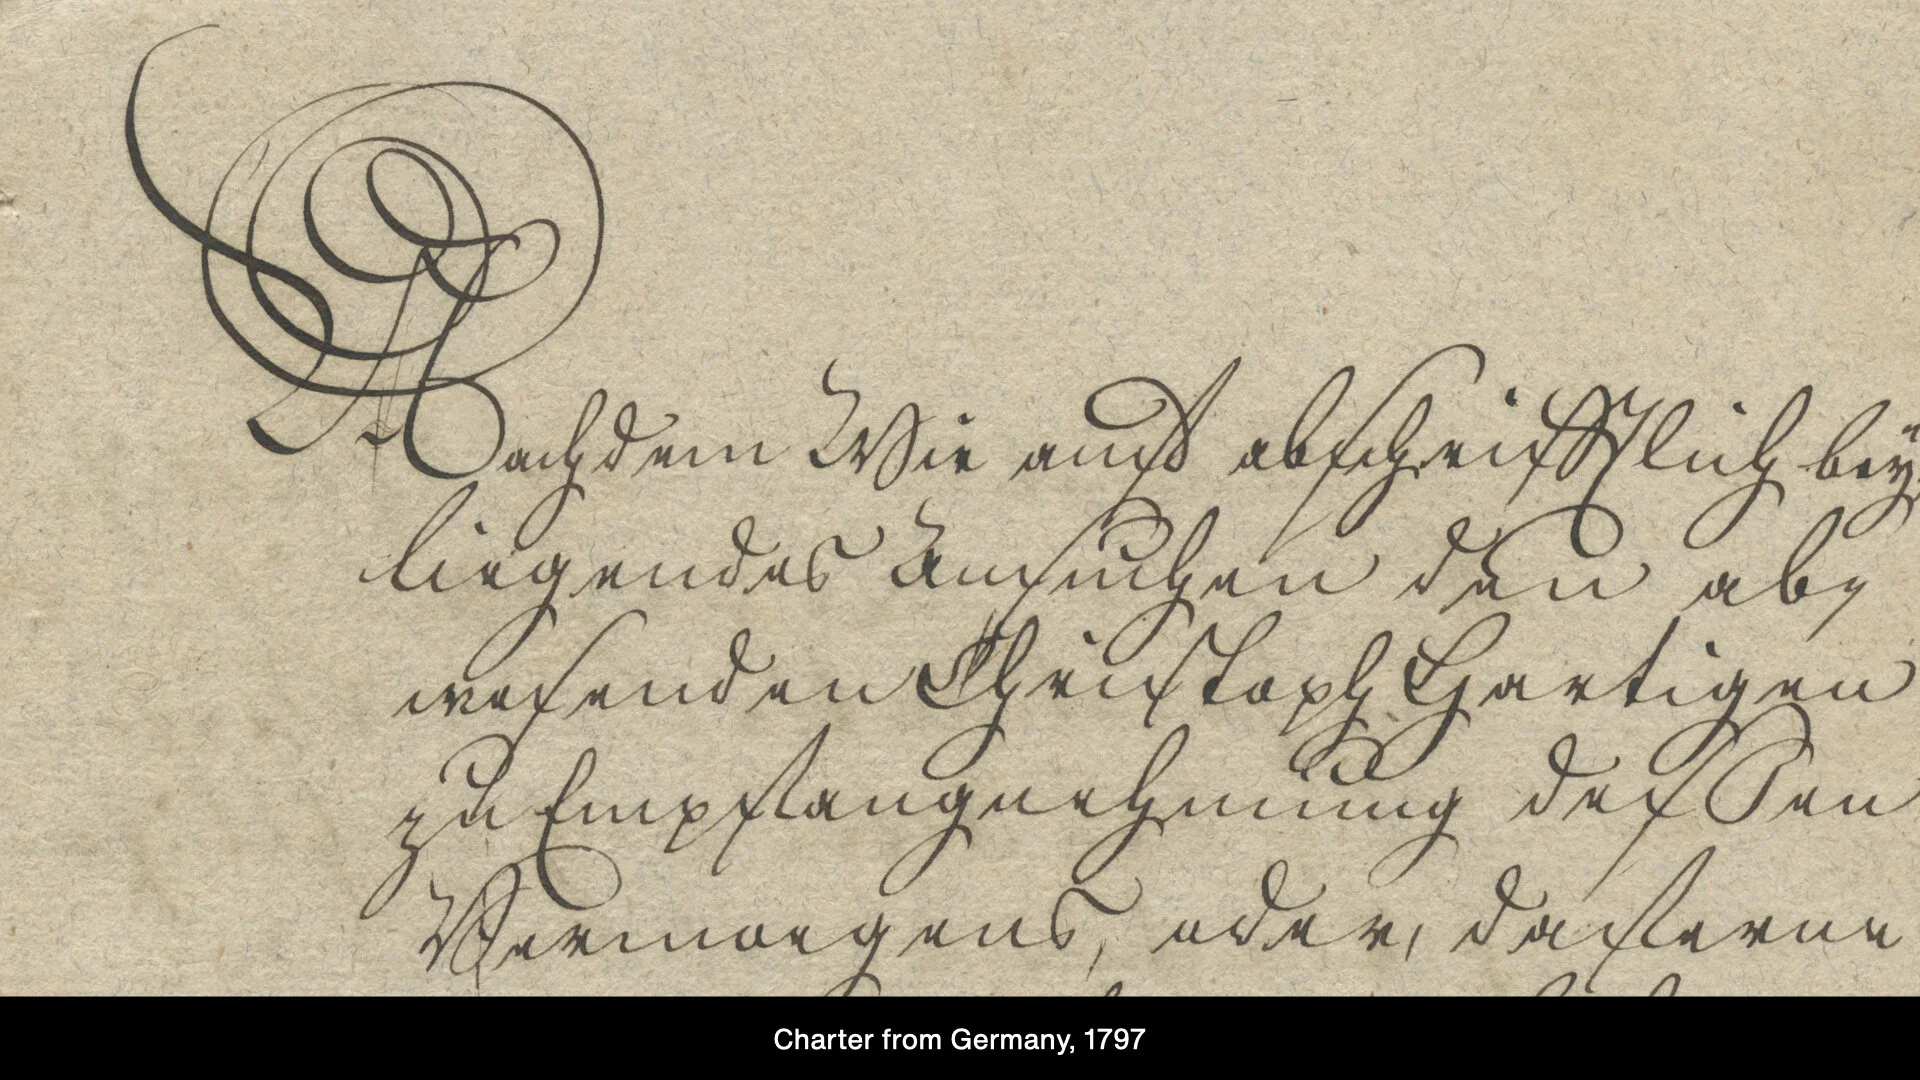 Nachdem Wir auf abschrifftlich bey
liegendes Ansuchen den ab
wesenden Christoph Hartigen
zu Empfangnehmung deßen
Vermoegens, oder, daferne
Charter from Germany, 1797